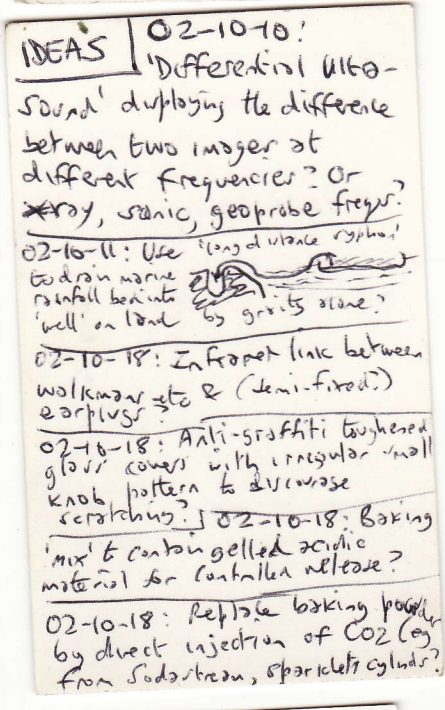 IDEAS
02-10-10:
'Differential Ultra-
sound' displaying the difference
between two images at
different frequencies? Or
xray, sonic, geoprobe freqs?
02-10-11: Use 'long distance syphon'
to drain marine
rainfall back into
'well' on land by gravity alone?
02-10-18: Infrared link between
walkmans etc & (semi-fixed?)
earplugs?
02-10-18: Anti-graffiti toughened
glass covers with irregular small
knob pattern to discourage
scratching?
02-10-18: Baking
'mix' to contain gelled acidic
material for controlled release?
02-10-18: Replace baking powder
by direct injection of CO2 (eg
from Sodastream, sparklets cylinds?